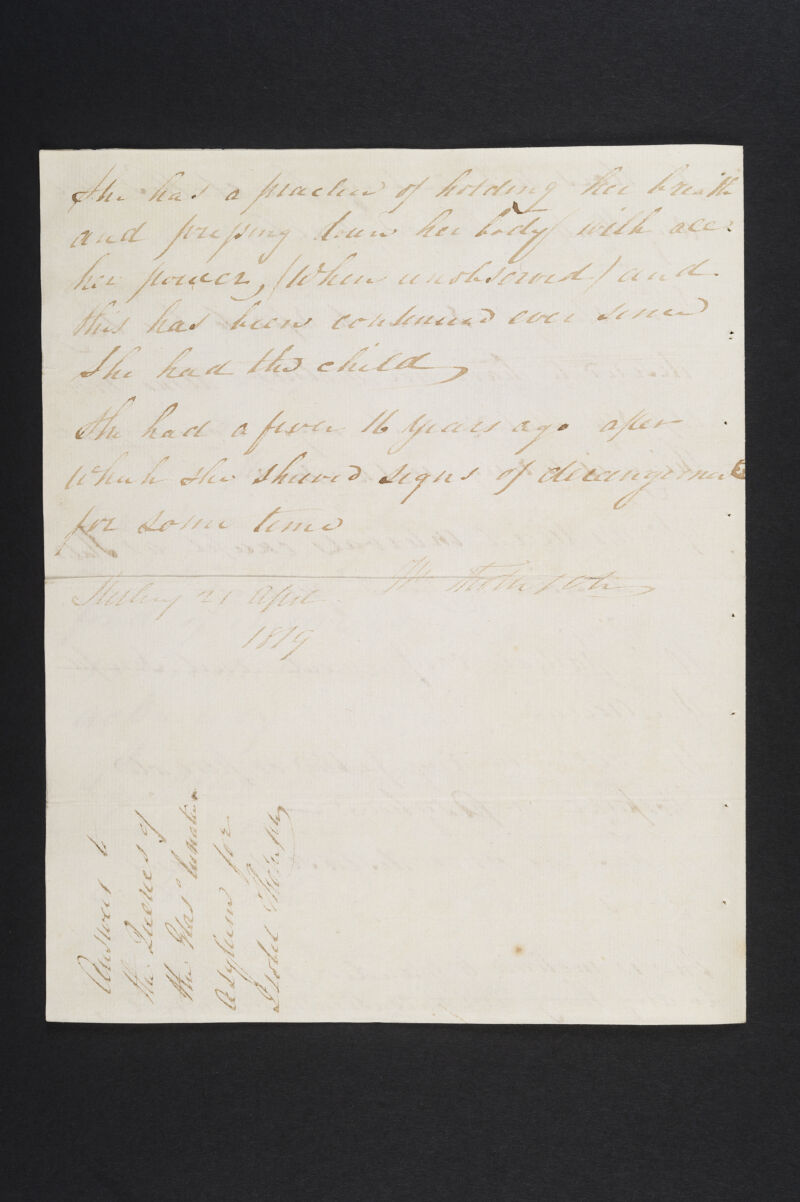 She has a practice of holding her breath
and pressing down her body with all
her power, (When unobserved) and
this has been continued ever since
She had the child,
She had a fever 16 years ago after
which she shewed signs of derangement
for some time
Stirling 21 April
Wm
1819
Answers to
the Queries of
the Glas Lunatic
Asylum for
Isobel